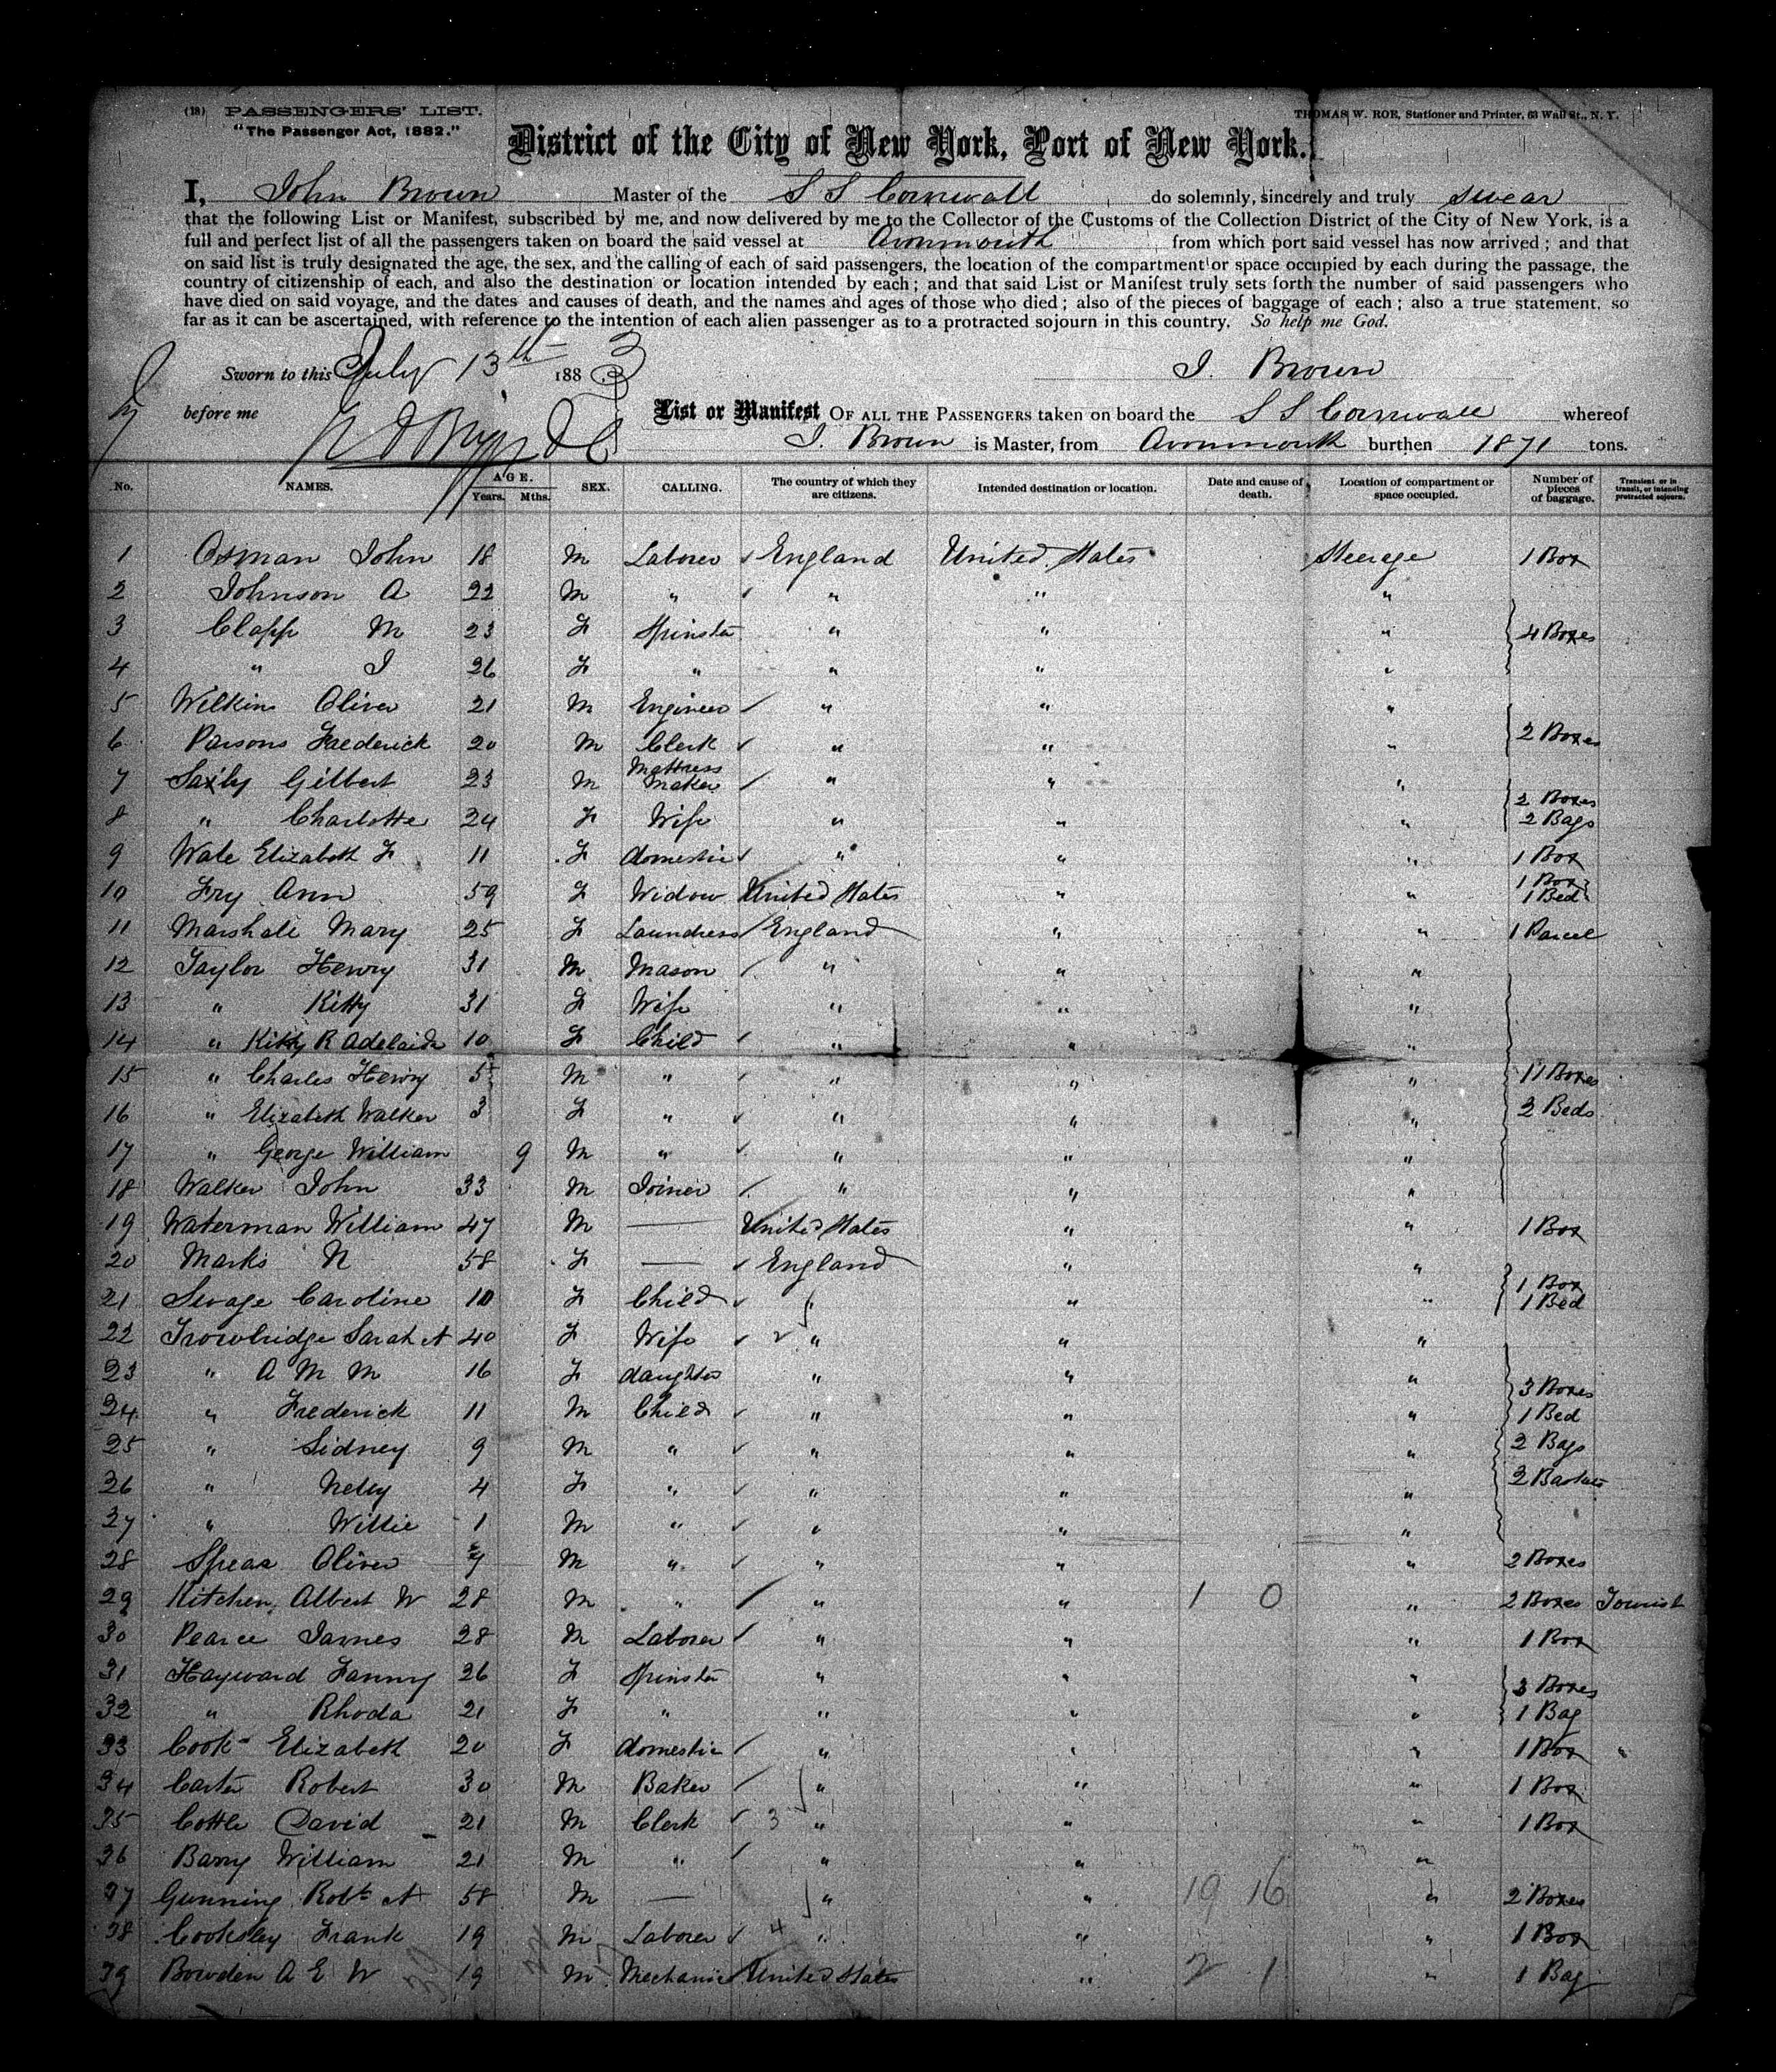 (18) PASSENGERS' LIST.
"The Passenger Act, 1882."
THOMAS W. ROE, Stationer and Printer, 63 Wall St., N. Y.
District of the City of New York, Port of New York.
I, John Brown Master of the S S Cornwall do solemnly, sincerely and truly swear
that the following List or Manifest, subscribed by me, and now delivered by me to the Collector of the Customs of the Collection District of the City of New York, is a
full and perfect list of all the passengers taken on board the said vessel at Avonmouth from which port said vessel has now arrived; and that
on said list is truly designated the age, the sex, and the calling of each of said passengers, the location of the compartment or space occupied by each during the passage, the
country of citizenship of each, and also the destination or location intended by each; and that said List or Manifest truly sets forth the number of said passengers who
have died on said voyage, and the dates and causes of death, and the names and ages of those who died; also of the pieces of baggage of each; also a true statement, so
far as it can be ascertained, with reference to the intention of each alien passenger as to a protracted sojourn in this country. So help me God.
Sworn to this July 13th 1883 J. Brown
before me
List or Manifest OF ALL THE PASSENGERS taken on board the S S Cornwall whereof
J. Brown is Master, from Avonmouth burthen 1871 tons.
No. NAMES. AGE. Years. Mths. SEX. CALLING. The country of which they are citizens. Intended destination or location. Date and cause of death. Location of compartment or space occupied. Number of pieces of baggage. Transient or in transit, or intending protracted sojourn.
1 Osman John 18 M Laborer England United States Steerage 1 Box
2 Johnson A 22 M " " " "
3 Clapp M 23 F Spinster " " " 4 Boxes
4 " J 26 F " " " "
5 Wilkins Oliver 21 M Engineer " " "
6 Parsons Frederick 20 M Clerk " " " 2 Boxes
7 Saxby Gilbert 23 M Mattress Maker " " "
8 " Charlotte 24 F Wife " " " 2 Boxes 2 Bags
9 Wale Elizabeth F 11 F domestic " " " 1 Box
10 Fry Ann 59 F Widow United States " " 1 Box 1 Bed
11 Marshall Mary 25 F Laundress England " " 1 Parcel
12 Taylor Henry 31 M Mason " " "
13 " Kitty 31 F Wife " " "
14 " Kitty R Adelaide 10 F Child " " "
15 " Charles Henry 5 M " " " " 11 Boxes
16 " Elizabeth Walker 3 F " " " " 2 Beds
17 " George William 9 M " " " "
18 Walker John 33 M Joiner " " "
19 Waterman William 47 M — United States " " 1 Box
20 Marks N 58 F — England " "
21 Savage Caroline 10 F Child " " 1 Box 1 Bed
22 Trowbridge Sarah A 40 F Wife 2 " " "
23 " A M M 16 F daughter " " "
24 " Frederick 11 M Child " " " 3 Boxes 1 Bed
25 " Sidney 9 M " " " " 2 Bags
26 " Nelly 4 F " " " " 2 Baskets
27 " Willie 1 M " " " "
28 Spear Oliver 7 M " " " " 2 Boxes
29 Kitchen Albert W 28 M " " " 1 0 " 2 Boxes Tourist
30 Pearce James 28 M Laborer " " " 1 Box
31 Hayward Fanny 26 F Spinster " " "
32 " Rhoda 21 F " " " " 3 Boxes 1 Bag
33 Cook Elizabeth 20 F domestic " " " 1 Box "
34 Carter Robert 30 M Baker " " " 1 Box
35 Cottle David 21 M Clerk 3 " " " 1 Box
36 Barry William 21 M " " " "
37 Gunning Robt A 58 M — " " 19 16 " 2 Boxes
38 Cooksley Frank 19 M Laborer 4 " " " 1 Box
39 Bowden A E W 19 M Mechanic United States " 2 1 " 1 Bag